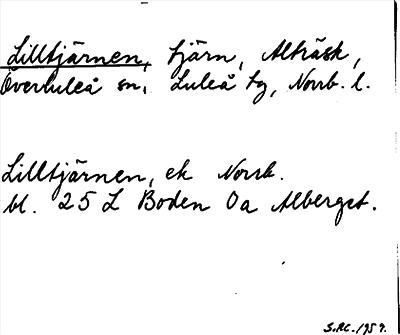 Lilltjärnen, tjärn, Alträsk,
Överluleå sn, Luleå tg, Norrb. l.
Lilltjärnen, ek Norrb.
bl. 25 L Boden 0a Alberget.
S.RC. 1959.